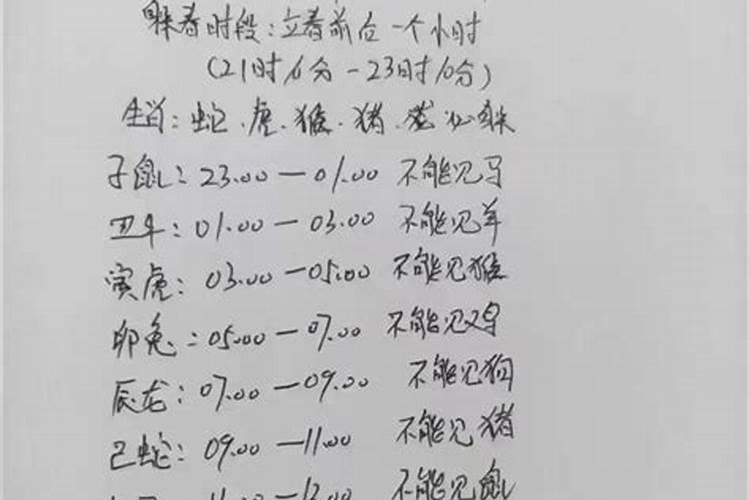 躲春时段：立春前后一个小时
(21时16分-23时10分)
生肖：蛇、虎、猴、猪、
子鼠：23.00—01.00 不能见马
丑牛：01.00—03.00 不能见羊
寅虎：03.00—05.00 不能见猴
卯兔：05.00—07.00 不能见鸡
辰龙：07.00—09.00 不能见狗
己蛇：09.00—11.00 不能见猪
不能见鼠